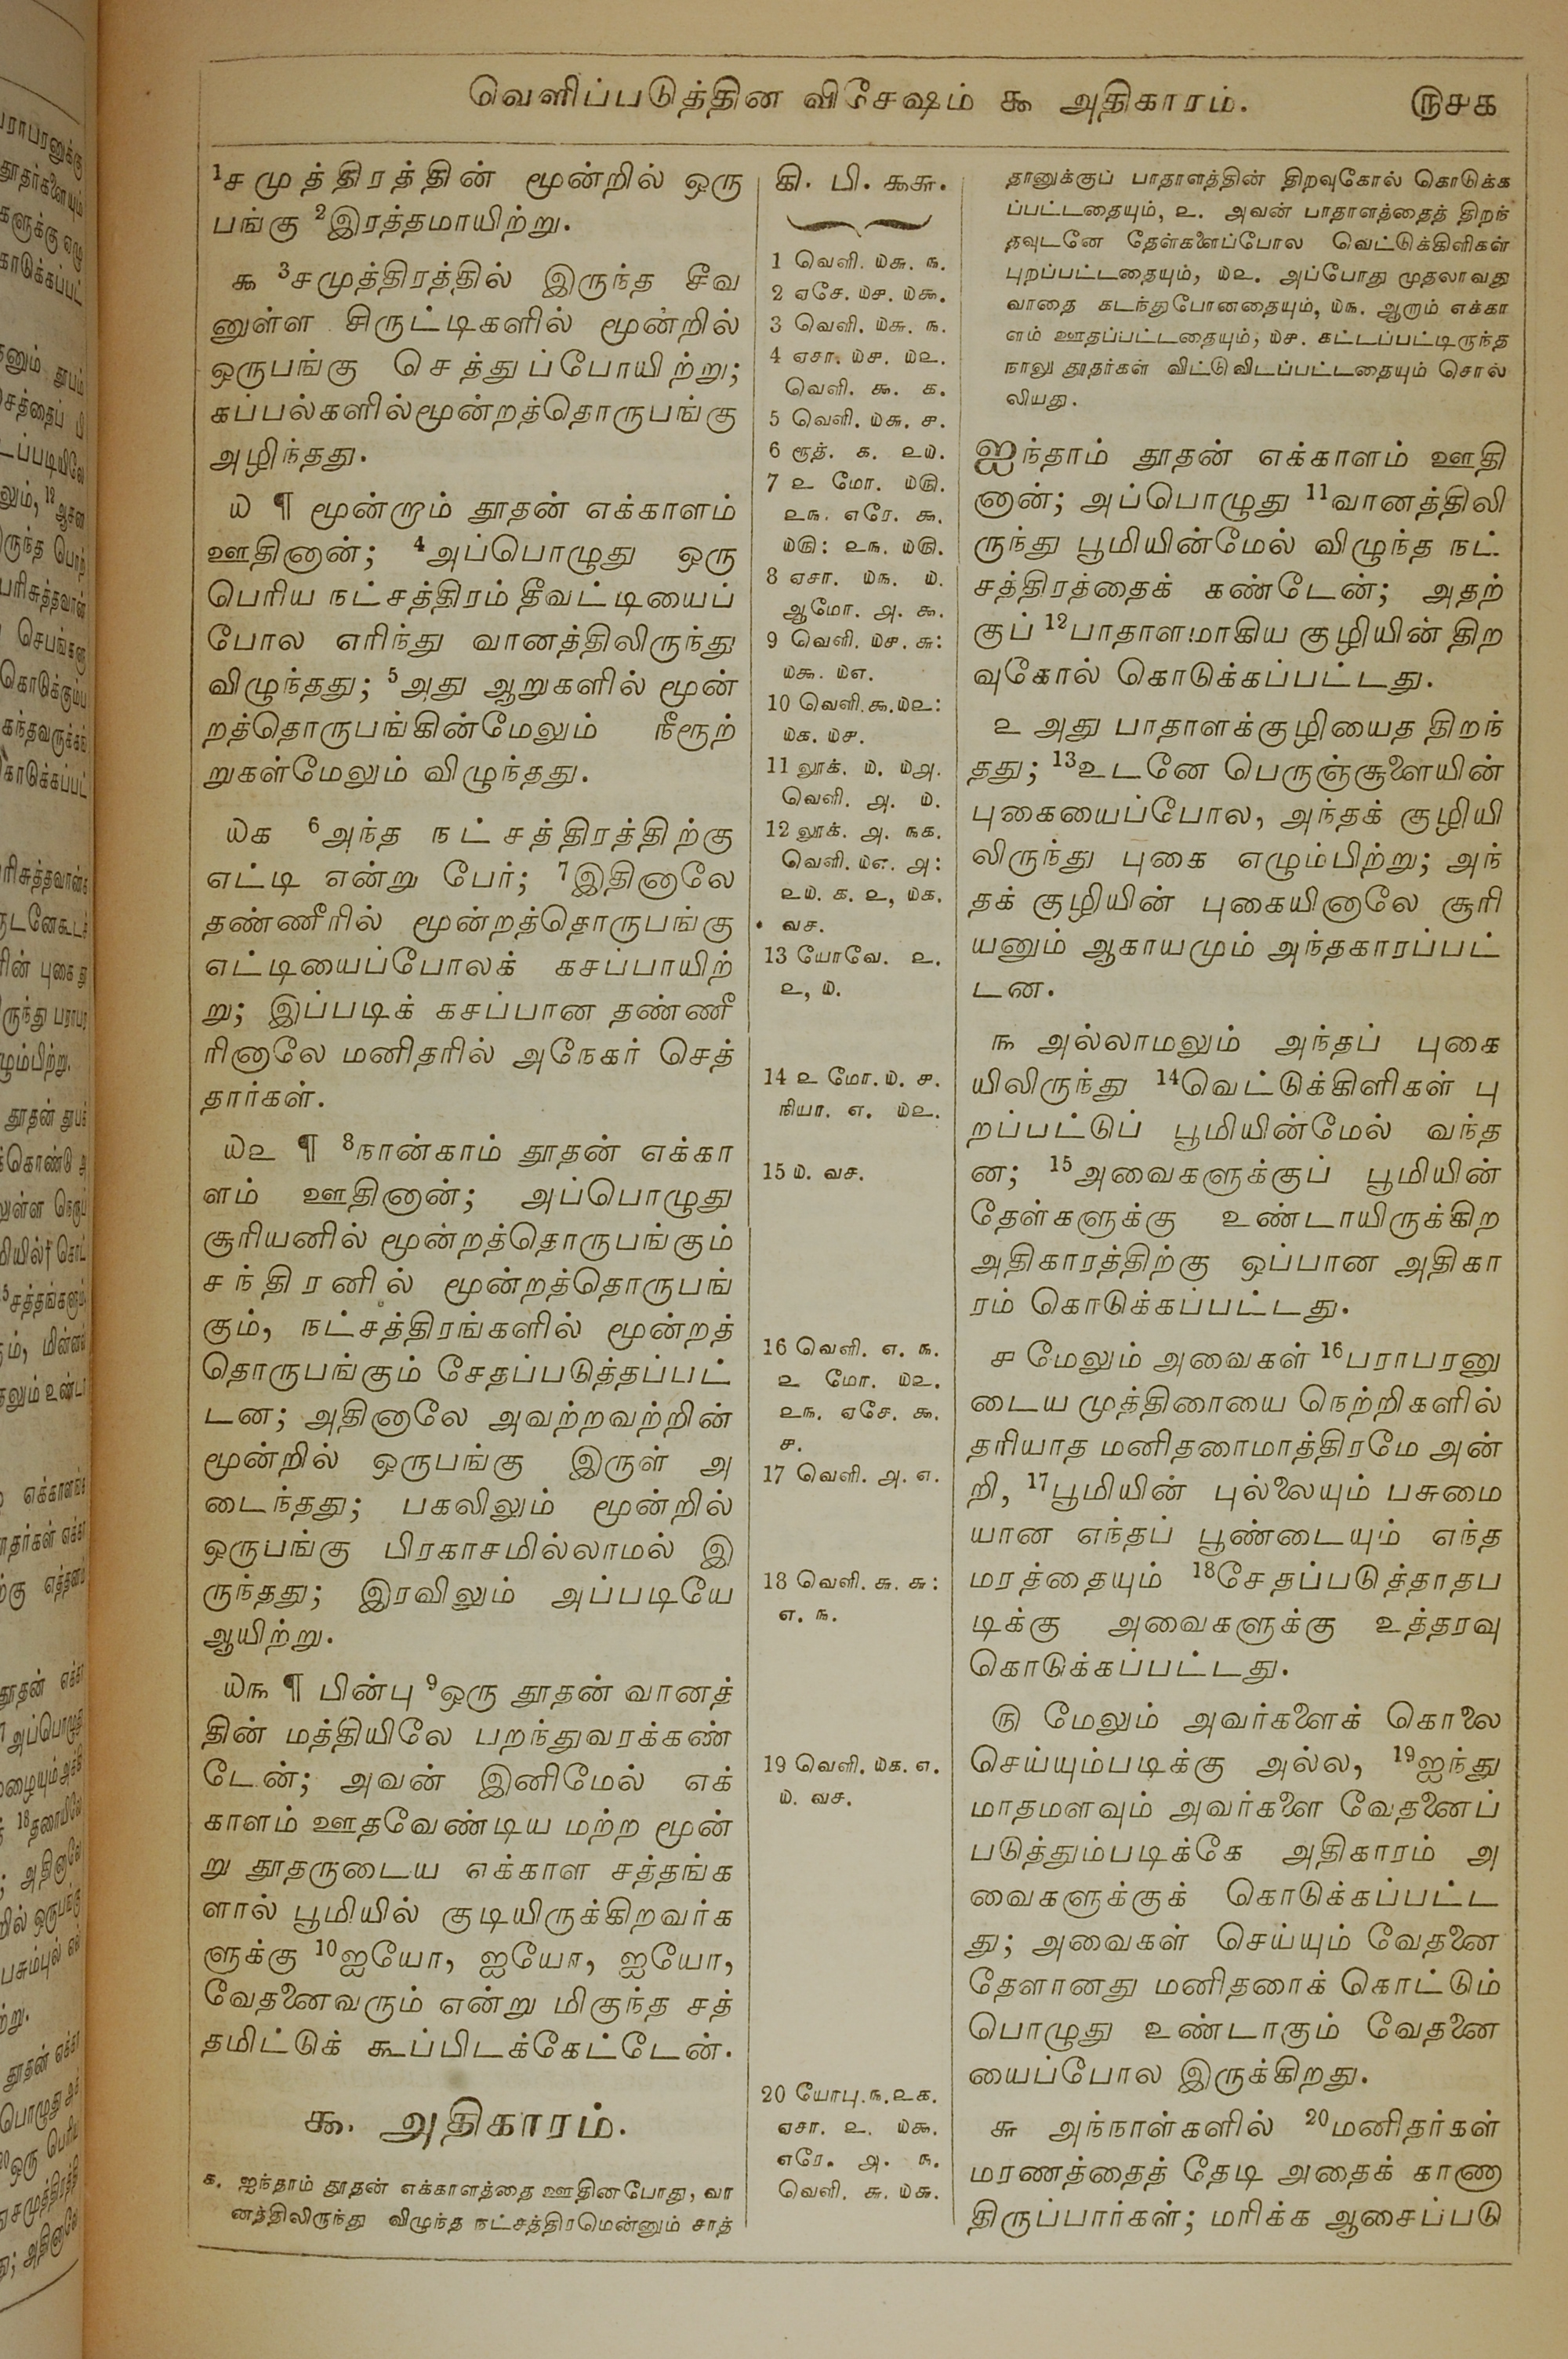 வெளிப்படுத்தின விசேஷம் ௯ அதிகாரம். ௫௪௧
1சமுத்திரத்தின் மூன்றில் ஒரு
பங்கு 2இரத்தமாயிற்று.
௯ 3சமுத்திரத்தில் இருந்த சீவ
னுள்ள சிருட்டிகளில் மூன்றில்
ஒருபங்கு செத்துப்போயிற்று;
கப்பல்களில்மூன்றத்தொருபங்கு
அழிந்தது.
௰ ¶ மூன்றாம் தூதன் எக்காளம்
ஊதினான்; 4அப்பொழுது ஒரு
பெரிய நட்சத்திரம் தீவட்டியைப்
போல எரிந்து வானத்திலிருந்து
விழுந்தது; 5அது ஆறுகளில் மூன்
றத்தொருபங்கின்மேலும் நீரூற்
றுகள்மேலும் விழுந்தது.
௰௧ 6அந்த நட்சத்திரத்திற்கு
எட்டி என்று பேர்; 7இதினாலே
தண்ணீரில் மூன்றத்தொருபங்கு
எட்டியைப்போலக் கசப்பாயிற்
று; இப்படிக் கசப்பான தண்ணீ
ரினாலே மனிதரில் அநேகர் செத்
தார்கள்.
௰௨ ¶ 8நான்காம் தூதன் எக்கா
ளம் ஊதினான்; அப்பொழுது
சூரியனில் மூன்றத்தொருபங்கும்
சந்திரனில் மூன்றத்தொருபங்
கும், நட்சத்திரங்களில் மூன்றத்
தொருபங்கும் சேதப்படுத்தப்பட்
டன; அதினாலே அவற்றவற்றின்
மூன்றில் ஒருபங்கு இருள் அ
டைந்தது; பகலிலும் மூன்றில்
ஒருபங்கு பிரகாசமில்லாமல் இ
ருந்தது; இரவிலும் அப்படியே
ஆயிற்று.
௰௩ ¶ பின்பு 9ஒரு தூதன் வானத்
தின் மத்தியிலே பறந்துவரக்கண்
டேன்; அவன் இனிமேல் எக்
காளம் ஊதவேண்டிய மற்ற மூன்
று தூதருடைய எக்காள சத்தங்க
ளால் பூமியில் குடியிருக்கிறவர்க
ளுக்கு 10ஐயோ, ஐயோ, ஐயோ,
வேதனைவரும் என்று மிகுந்த சத்
தமிட்டுக் கூப்பிடக்கேட்டேன்.
௯. அதிகாரம்.
௧. ஐந்தாம் தூதன் எக்காளத்தை ஊதினபோது, வா
னத்திலிருந்து விழுந்த நட்சத்திரமென்னும் சாத்
கி. பி. ௯௬.
1 வெளி. ௰௬. ௩.
2 ஏசே. ௰௪. ௰௯.
3 வெளி. ௰௬. ௩.
4 ஏசா. ௰௪. ௰௨.
வெளி. ௯. ௧.
5 வெளி. ௰௬. ௪.
6 ரூத். ௧. ௨௰.
7 ௨ மோ. ௰௫.
௨௩. எரே. ௯.
௰௫: ௨௩. ௰௫.
8 ஏசா. ௰௩. ௰.
ஆமோ. அ. ௯.
9 வெளி. ௰௪. ௬:
௰௯. ௰௭.
10 வெளி.௯.௰௨:
௰௧. ௰௪.
11 லூக். ௰. ௰௮.
வெளி. அ. ௰.
12 லூக். அ. ௩௧.
வெளி. ௰௭. அ:
௨௰. ௧. ௨, ௰௧.
வச.
13 யோவே. ௨.
௨, ௰.
14 ௨ மோ. ௰. ௪.
நியா. ௭. ௰௨.
15 ௰. வச.
16 வெளி. ௭. ௩.
௨ மோ. ௰௨.
௨௩. ஏசே. ௯.
௪.
17 வெளி. அ. ௭.
18 வெளி. ௬. ௬:
௭. ௩.
19 வெளி. ௰௧. ௭.
௰. வச.
20 யோபு.௩.௨௧.
ஏசா. ௨. ௰௯.
எரே. அ. ௩.
வெளி. ௬. ௰௬.
தானுக்குப் பாதாளத்தின் திறவுகோல் கொடுக்க
ப்பட்டதையும், ௨. அவன் பாதாளத்தைத் திறந்
தவுடனே தேள்களைப்போல வெட்டுக்கிளிகள்
புறப்பட்டதையும், ௰௨. அப்போது முதலாவது
வாதை கடந்துபோனதையும், ௰௩. ஆறாம் எக்கா
ளம் ஊதப்பட்டதையும், ௰௪. கட்டப்பட்டிருந்த
நாலு தூதர்கள் விட்டுவிடப்பட்டதையும் சொல்
லியது.
ஐந்தாம் தூதன் எக்காளம் ஊதி
னான்; அப்பொழுது 11வானத்திலி
ருந்து பூமியின்மேல் விழுந்த நட்
சத்திரத்தைக் கண்டேன்; அதற்
குப் 12பாதாளமாகிய குழியின் திற
வுகோல் கொடுக்கப்பட்டது.
௨ அது பாதாளக்குழியைத திறந்
தது; 13உடனே பெருஞ்சூளையின்
புகையைப்போல, அந்தக் குழியி
லிருந்து புகை எழும்பிற்று; அந்
தக் குழியின் புகையினாலே சூரி
யனும் ஆகாயமும் அந்தகாரப்பட்
டன.
௩ அல்லாமலும் அந்தப் புகை
யிலிருந்து 14வெட்டுக்கிளிகள் பு
றப்பட்டுப் பூமியின்மேல் வந்த
ன; 15அவைகளுக்குப் பூமியின்
தேள்களுக்கு உண்டாயிருக்கிற
அதிகாரத்திற்கு ஒப்பான அதிகா
ரம் கொடுக்கப்பட்டது.
௪ மேலும் அவைகள் 16பராபரனு
டைய முத்திரையை நெற்றிகளில்
தரியாத மனிதரைமாத்திரமே அன்
றி, 17பூமியின் புல்லையும் பசுமை
யான எந்தப் பூண்டையும் எந்த
மரத்தையும் 18சேதப்படுத்தாதப
டிக்கு அவைகளுக்கு உத்தரவு
கொடுக்கப்பட்டது.
௫ மேலும் அவர்களைக் கொலை
செய்யும்படிக்கு அல்ல, 19ஐந்து
மாதமளவும் அவர்களை வேதனைப்
படுத்தும்படிக்கே அதிகாரம் அ
வைகளுக்குக் கொடுக்கப்பட்ட
து; அவைகள் செய்யும் வேதனை
தேளானது மனிதரைக் கொட்டும்
பொழுது உண்டாகும் வேதனை
யைப்போல இருக்கிறது.
௬ அந்நாள்களில் 20மனிதர்கள்
மரணத்தைத் தேடி அதைக் காணா
திருப்பார்கள்; மரிக்க ஆசைப்படு